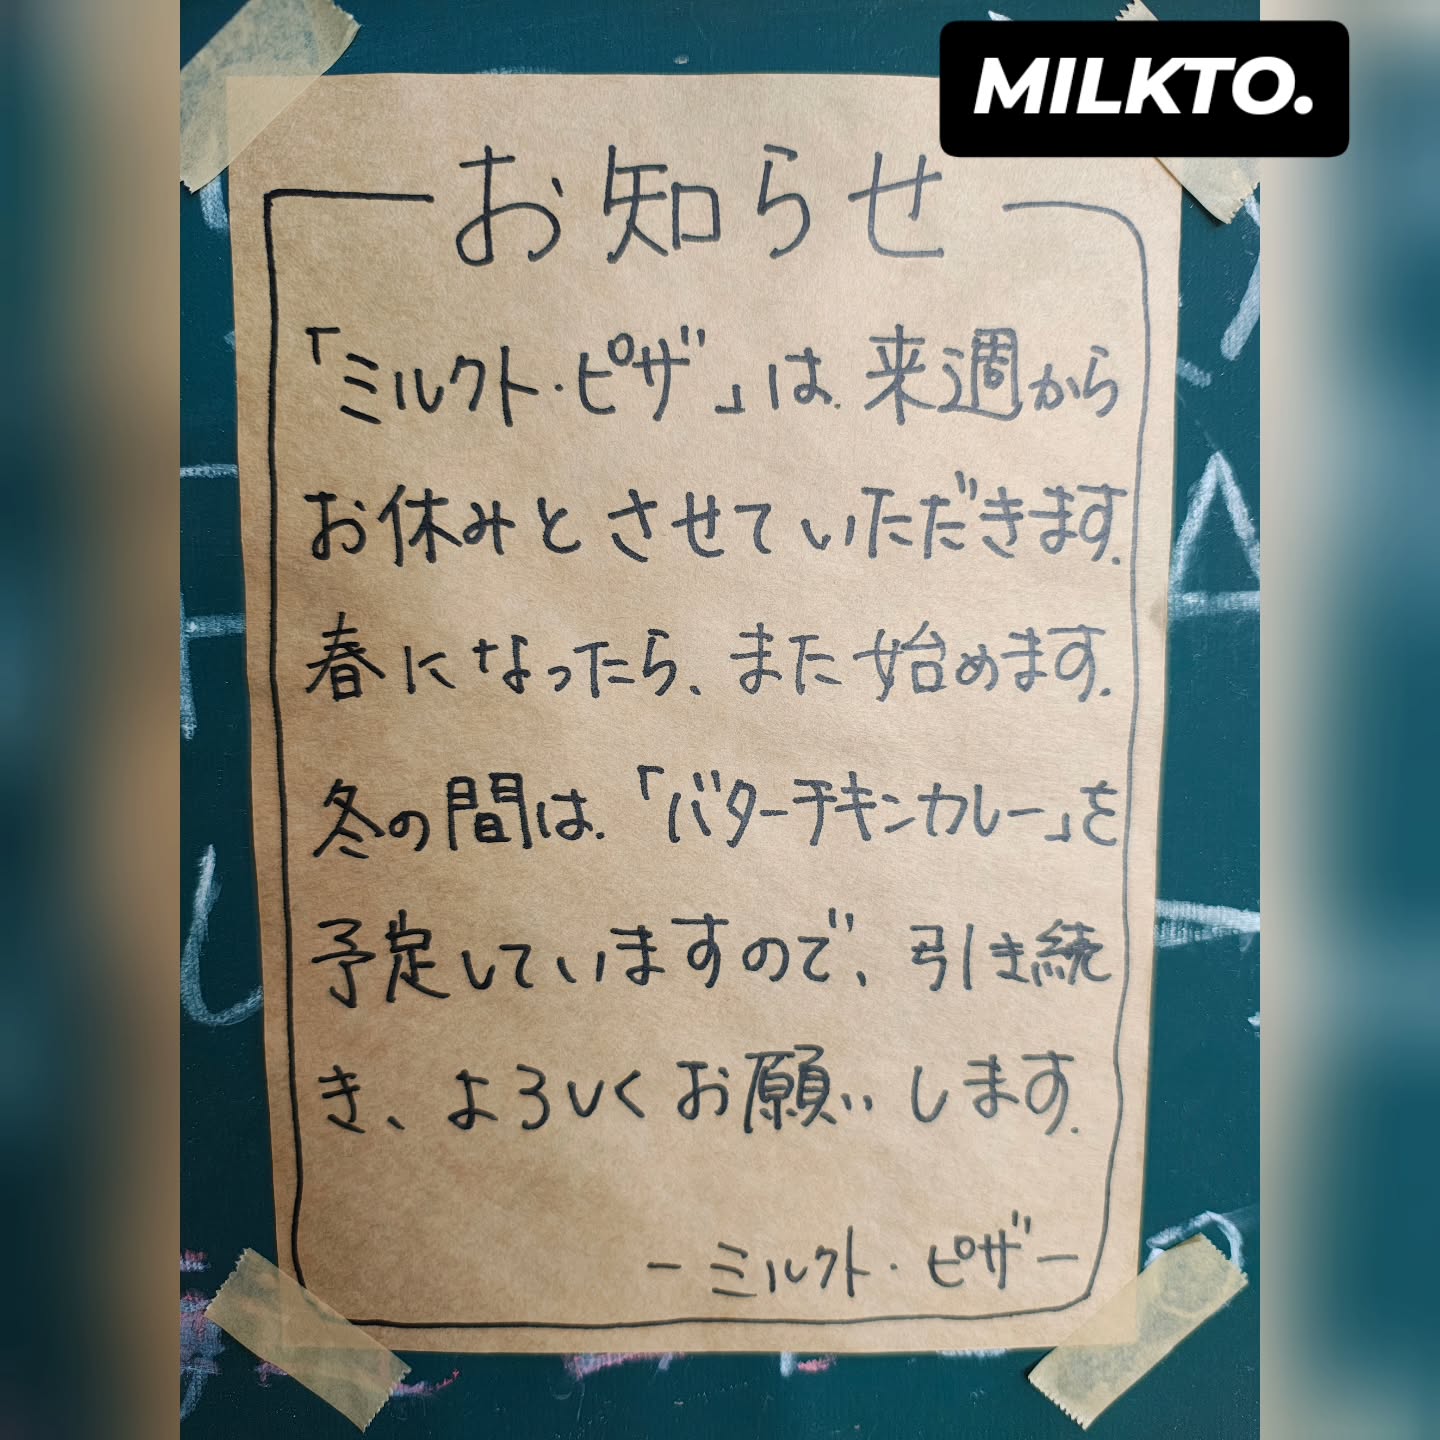 MILKTO.
お知らせ
「ミルクト・ピザ」は、来週から
お休みとさせていただきます。
春になったら、また始めます。
冬の間は、「バターチキンカレー」を
予定していますので、引き続
き、よろしくお願いします。
ーミルクト・ピザー